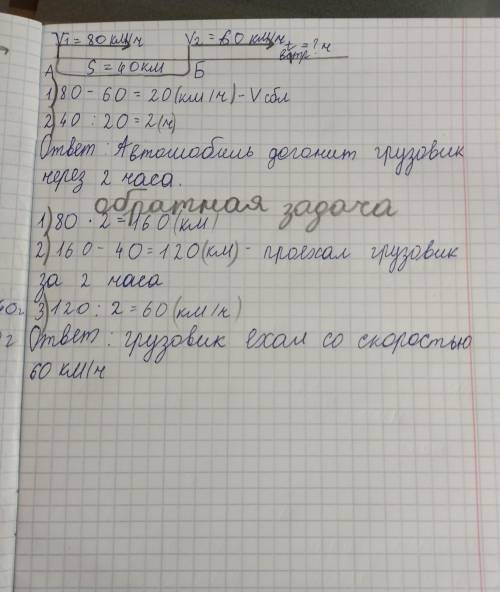 V1 = 80 км/ч V2 = 60 км/ч tвстр = ? ч
А S = 40 км Б
1) 80 - 60 = 20 (км/ч) - V сбл
2) 40 : 20 = 2 (ч)
Ответ: Автомобиль догонит грузовик
через 2 часа.
обратная задача
1) 80 · 2 = 160 (км)
2) 160 - 40 = 120 (км) - проехал грузовик
за 2 часа
3) 120 : 2 = 60 (км/ч)
Ответ: грузовик ехал со скоростью
60 км/ч